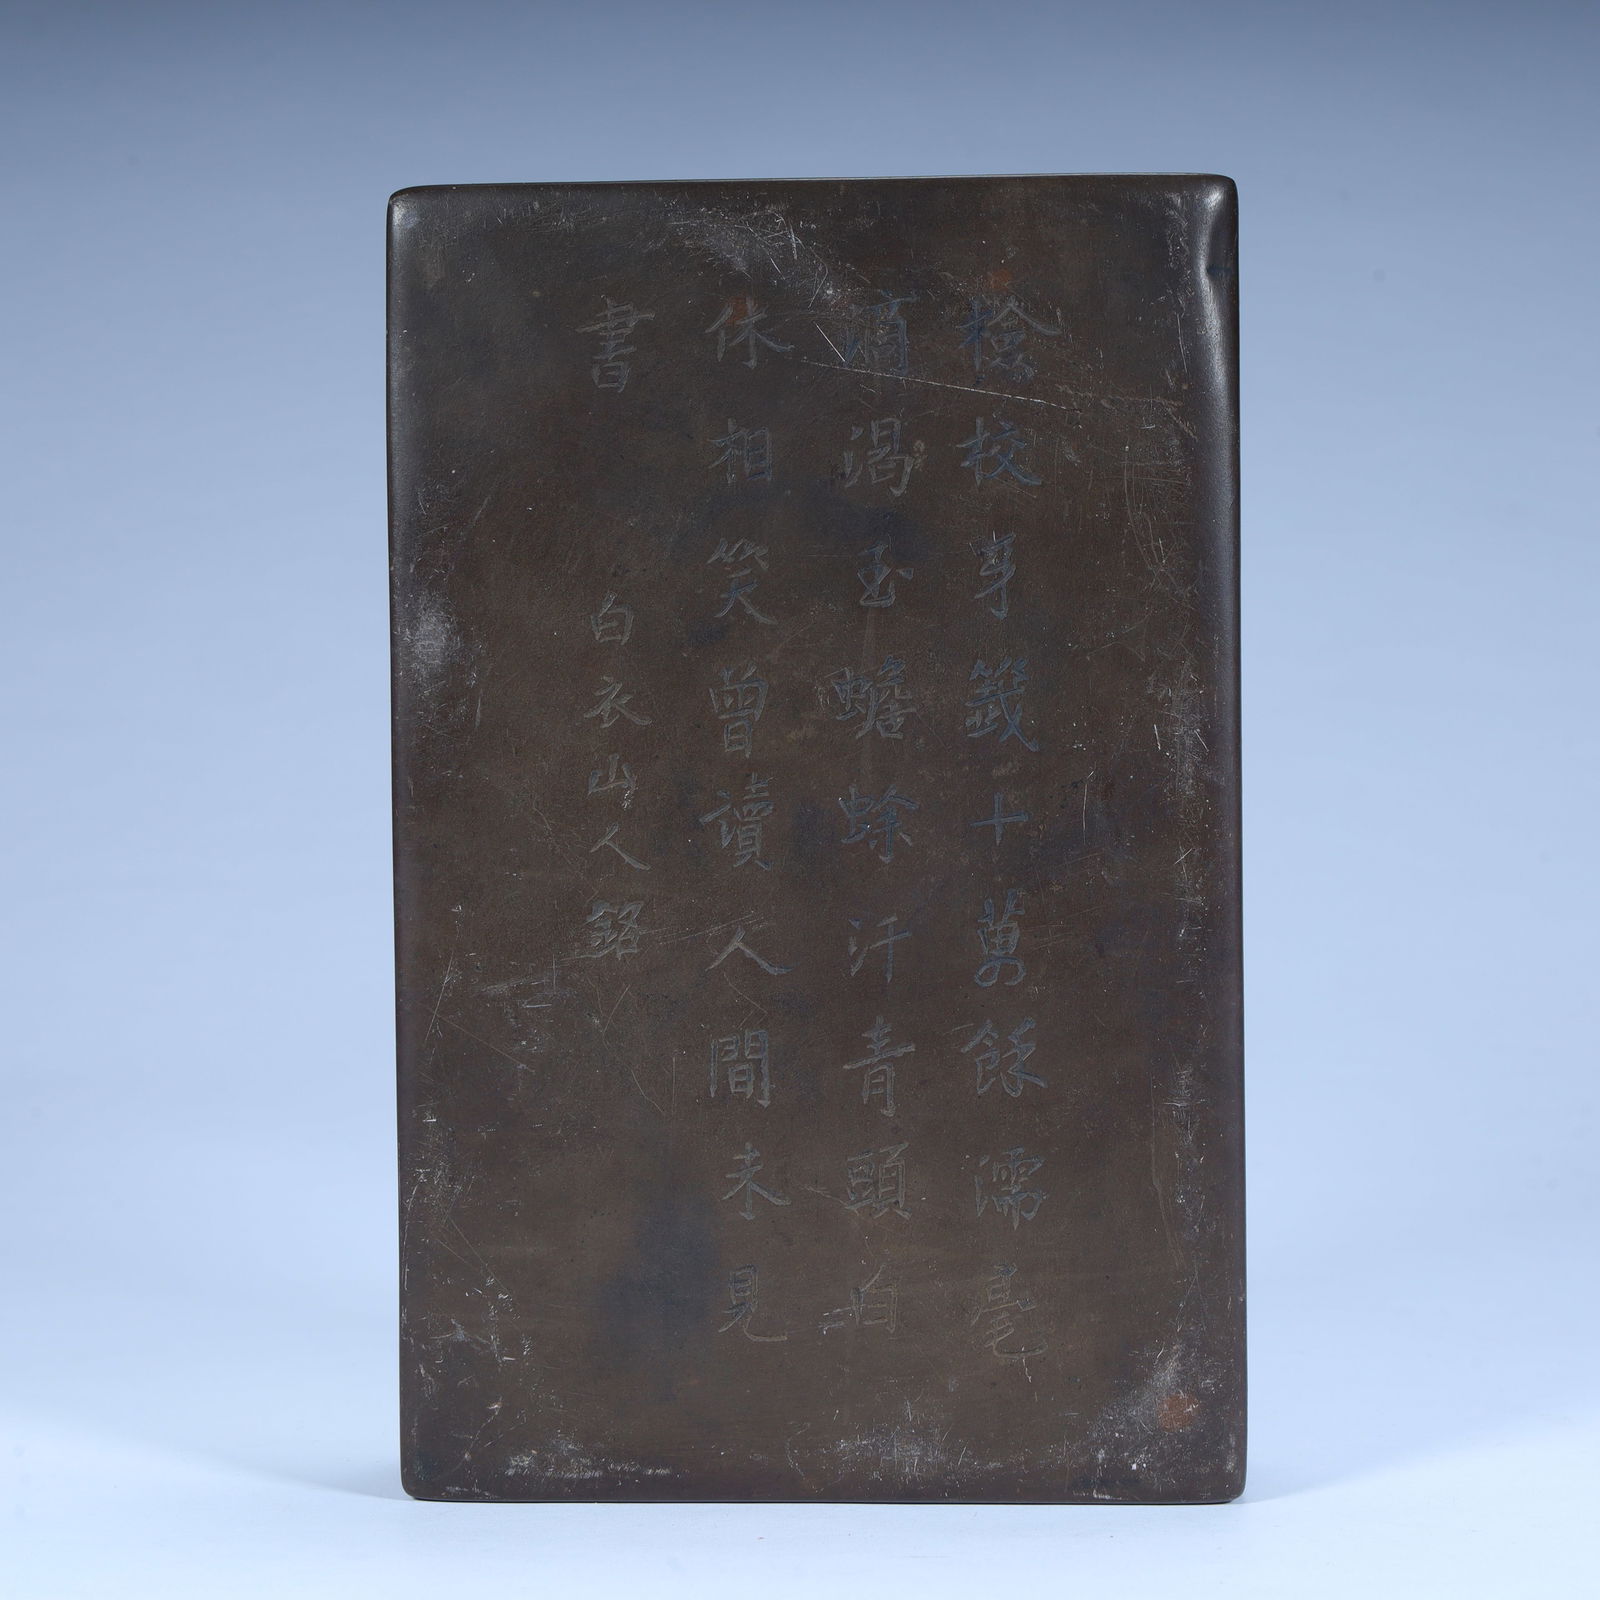 檢校牙籤十萬餘濡毫
滴渴玉蟾蜍汗青頭白
休相笑曾讀人間未見
書
白衣山人銘